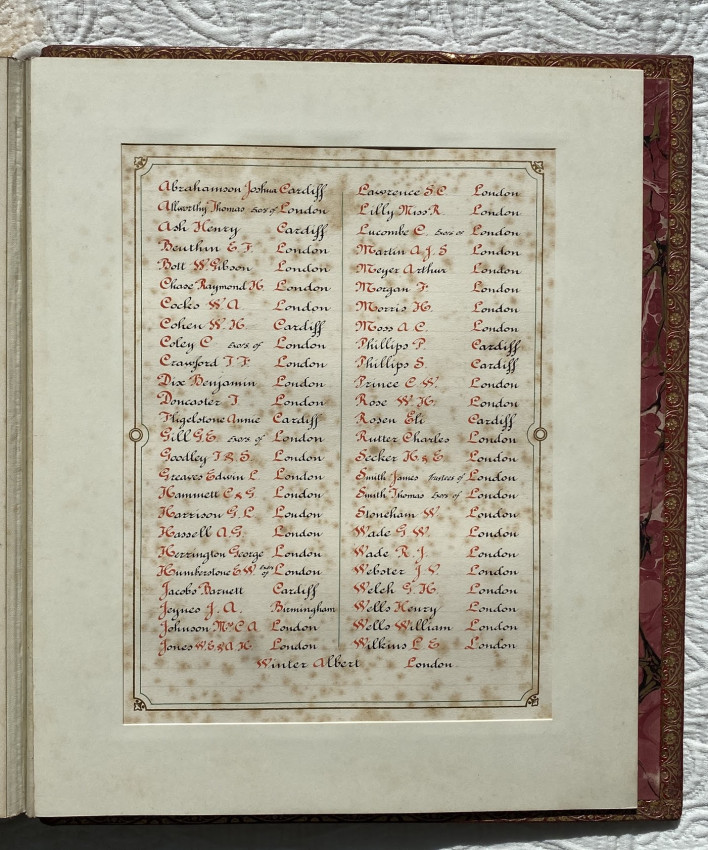 Abrahamson Joshua Cardiff
Allworthy Thomas Exors of London
Ash Henry Cardiff
Beuthin E. F. London
Bott W. Gibson London
Chase Raymond H. London
Cocks W. A. London
Cohen W. H. Cardiff
Coley C Exors of London
Crawford T F. London
Dix Benjamin London
Doncaster J. London
Fligelstone Annie Cardiff
Gill G. E. Exors of London
Goodley T & S. London
Greaves Edwin L. London
Hammett C & G London
Harrison G. L. London
Hassell A. G. London
Herrington George London
Humberstone E W. Exors of London
Jacobs Barnett Cardiff
Jeynes J. A. Birmingham
Johnson Mrs C A London
Jones W. E & A. H London
Lawrence S. C. London
Lilly Miss R. London
Lucombe C. Exors of London
Martin A. J. S London
Meyer Arthur London
Morgan F. London
Morris H. London
Moss A C. London
Phillips P. Cardiff
Phillips S. Cardiff
Prince C. W. London
Rose W. H. London
Rosen Eli Cardiff
Rutter Charles London
Secker H & E. London
Smith James Trustees of London
Smith Thomas Exors of London
Stoneham W. London
Wade G W. London
Wade R. J. London
Webster J. V. London
Welch G. H. London
Wells Henry London
Wells William London
Wilkins L. E. London
Winter Albert London